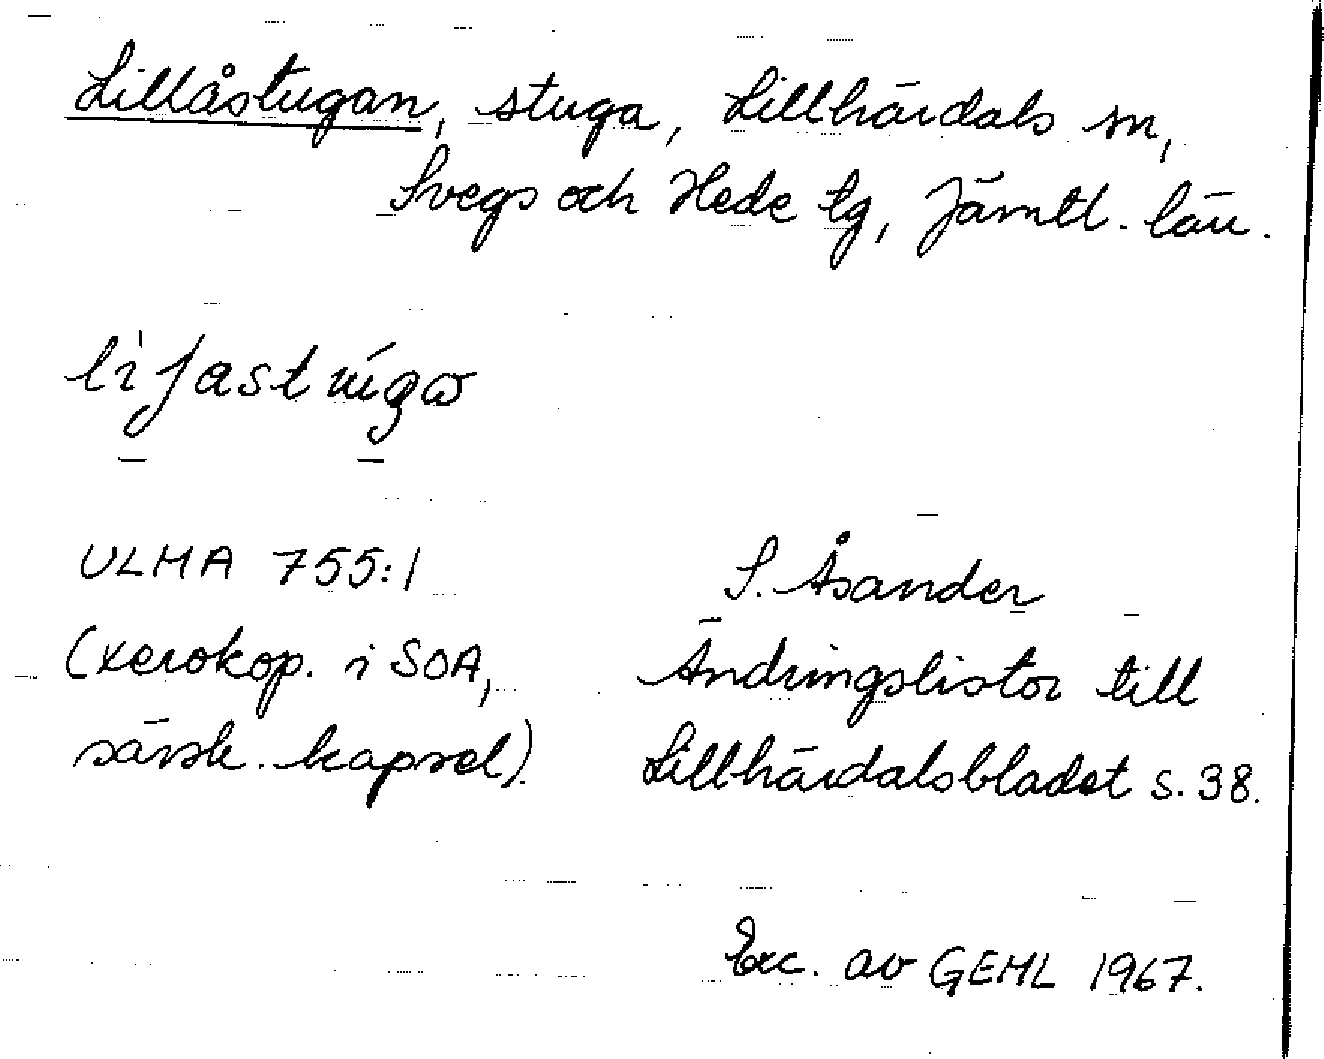 Lillåstugan, stuga, Lillhärdals sn,
Svegs och Hede tg, Jämtl. län.
ULMA 755:1
(xerokop. i SOA,
särsk. kapsel).
S. Åsander
Ändringslistor till
Lillhärdalsbladet s. 38.
Exc. av GEHL 1967.